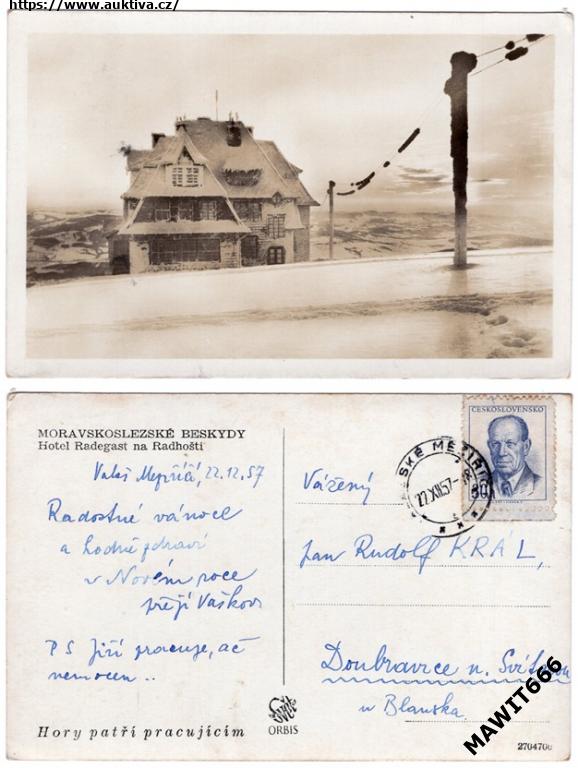 https://www.auktiva.cz/
MORAVSKOSLEZSKÉ BESKYDY
Hotel Radegast na Radhošti
Valaš Meziříčí, 22.12.57
Radostné vánoce
a hodně zdraví
v Novém roce
přejí Vaškovi
PS Jiří pracuje, ač
nemocen..
Hory patří pracujícím
ORBIS
ČESKOSLOVENSKO
22.XII.57
Vážený
pan Rudolf KRÁL,
Doubravice n. Svitavou
u Blanska
MAWIT666